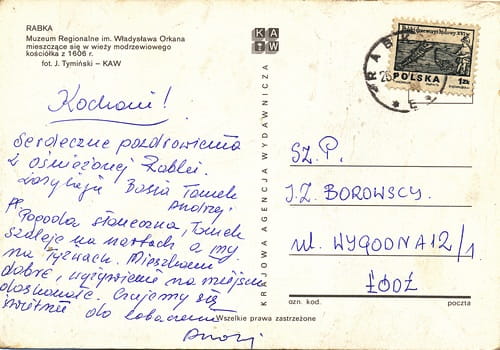 RABKA
Muzeum Regionalne im. Władysława Orkana
mieszczące się w wieży modrzewiowego
kościółka z 1606 r.
fot. J. Tymiński — KAW
KAW
Kochani!
Serdeczne pozdrowienia
z ośnieżonej Rabki.
zasyłają Basia Tomek
Andrzej
Pogoda słoneczna, Tomek
szaleje na nartach a my
na łyżwach. Mieszkamy
dobrze, wyżywienie na miejscu
doskonałe. Czujemy się
świetnie do zobaczenia
KRAJOWA AGENCJA WYDAWNICZA
RABK
POLSKA
1zł
SZ.P.
J.Z. BOROWSCY.
ul. WYGODNA 12/1
ŁÓDŹ
ozn. kod.
poczta
Wszelkie prawa zastrzeżone